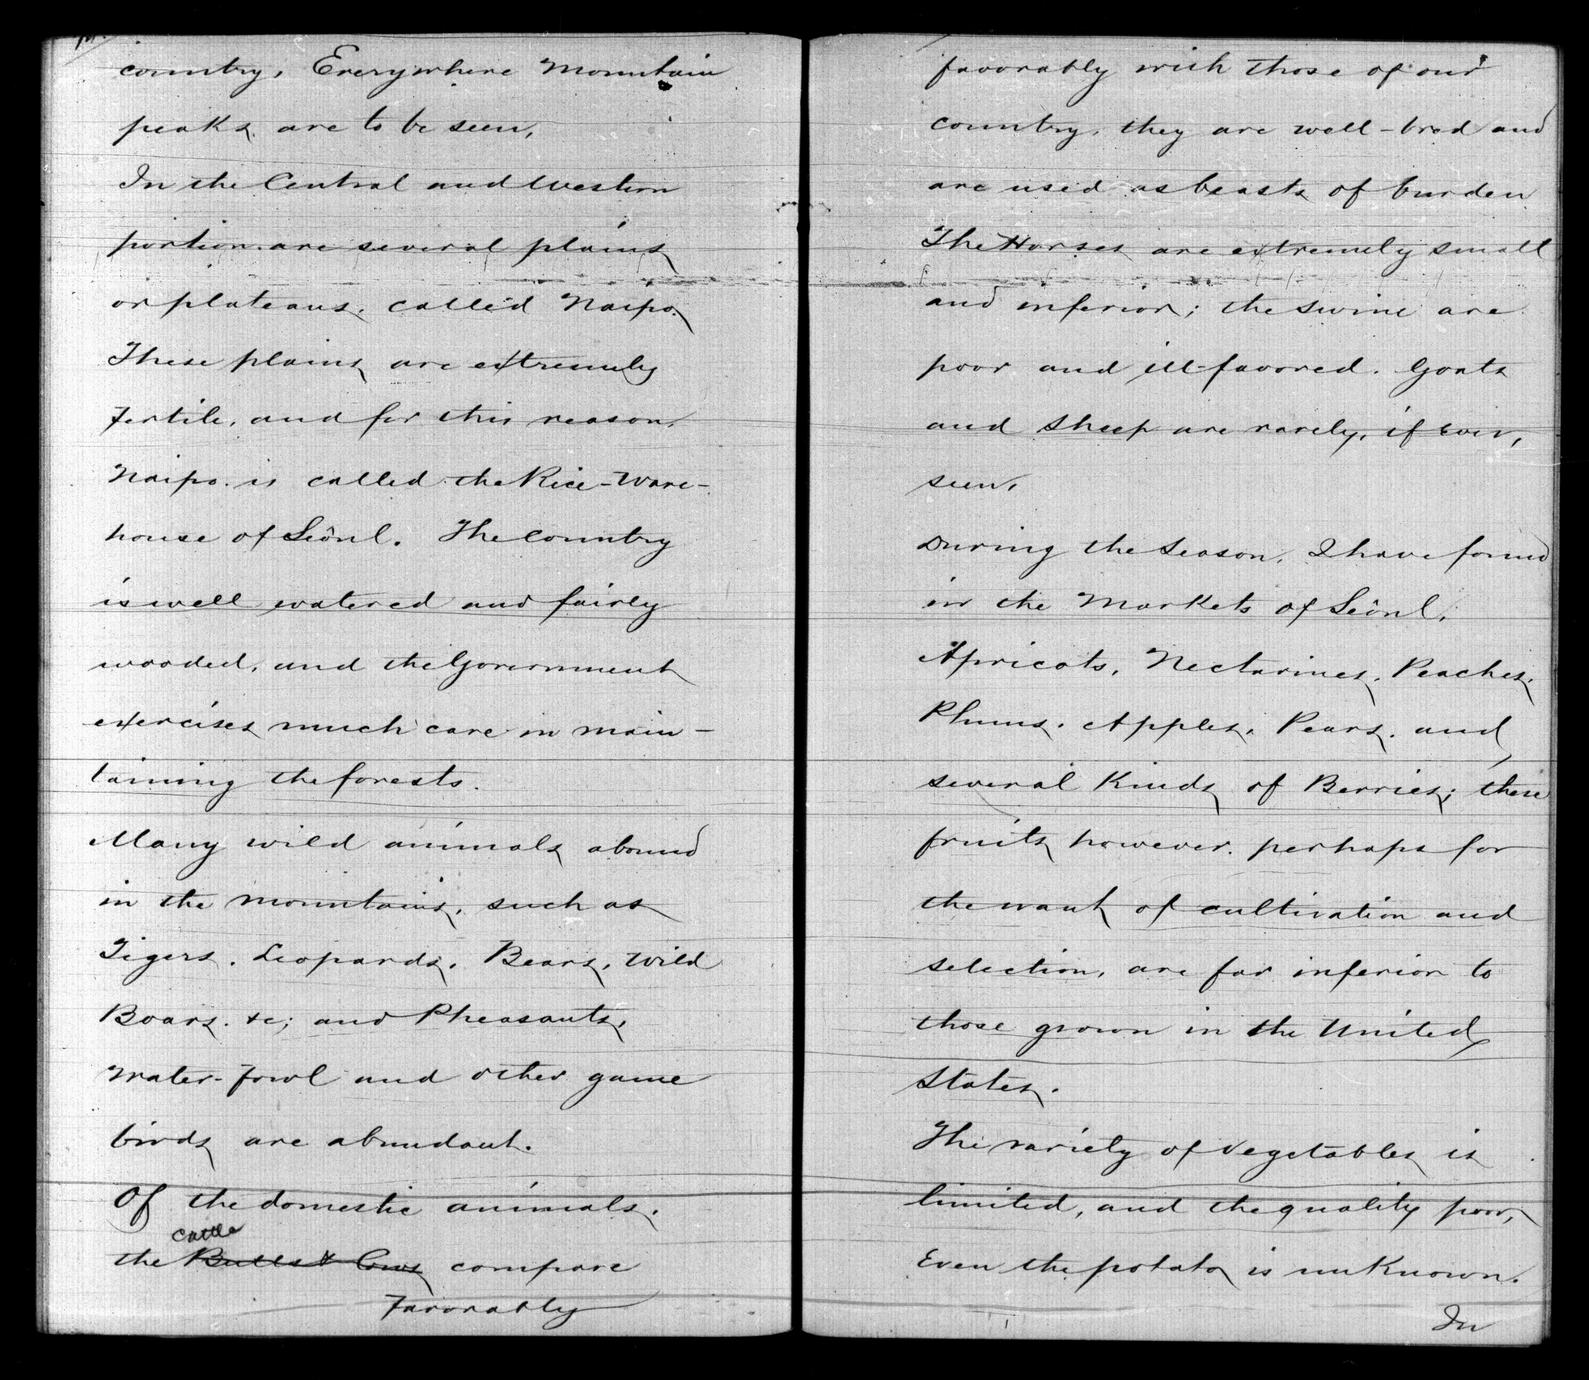 country. Everywhere Mountain
peaks are to be seen.
In the Central and Western
portion are several plains
or plateaus, called Naipo.
These plains are extremely
fertile, and for this reason,
Naipo is called the Rice-Ware-
house of Seôul. The Country
is well watered and fairly
wooded, and the Government
exercises much care in main-
taining the forests.
Many wild animals abound
in the mountains, such as
Tigers, Leopards, Bears, Wild
Boars, &c; and Pheasants,
Water-fowl and other game
birds are abundant.
Of the domestic animals,
cattle
the Bulls & Cows compare
Favorably
favorably with those of our
country, they are well-bred and
are used as beasts of burden
The Horses are extremely small
and inferior; the swine are
poor and ill-favored. Goats
and Sheep are rarely, if ever,
seen.
During the Season, I have found
in the Markets of Seôul,
Apricots, Nectarines, Peaches,
Plums, Apples, Pears, and
several Kinds of Berries; these
fruits however, perhaps for
the want of cultivation and
selection, are far inferior to
those grown in the United
States.
The variety of Vegetables is
limited, and the quality poor,
Even the potato is unKnown.
In